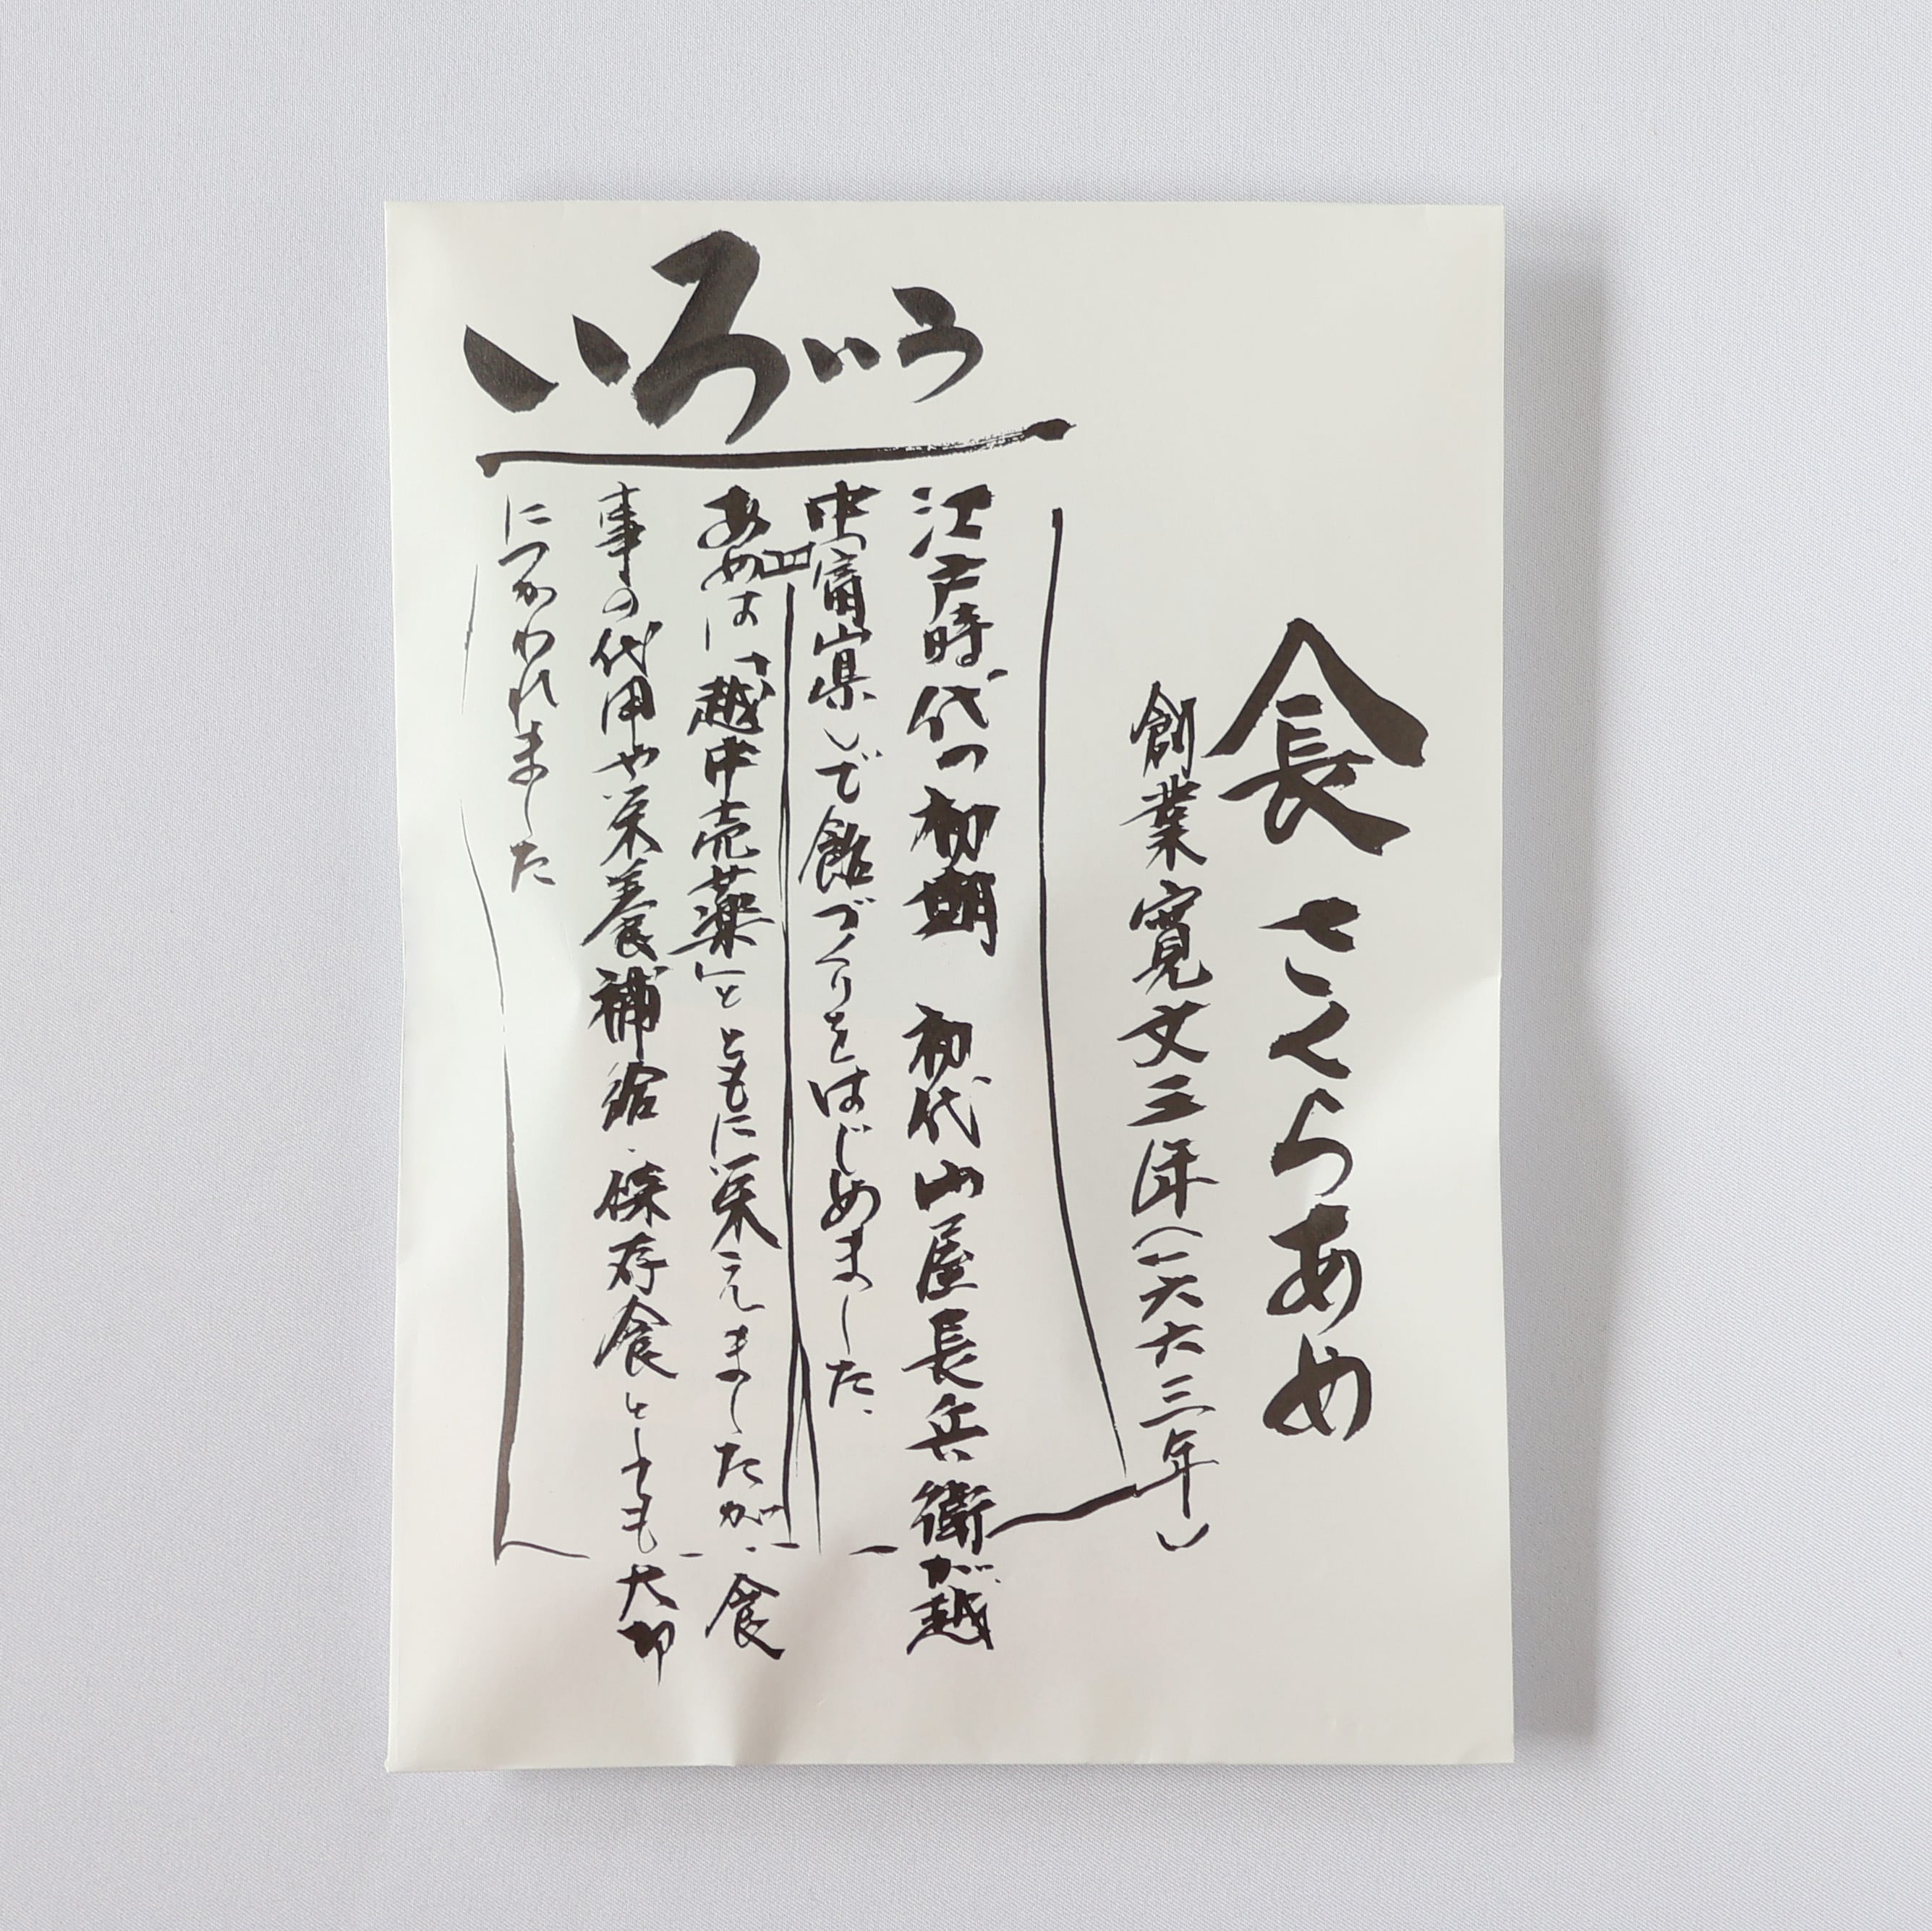 いろいろ
長 さくらあめ
創業寛文三年(一六六三年)
江戸時代の初期　初代山屋長兵衛が越
中(富山県)で飴づくりをはじめました。
あめは「越中売薬」とともに栄えましたが、食
事の代用や栄養補給、保存食としても大切
につかわれました